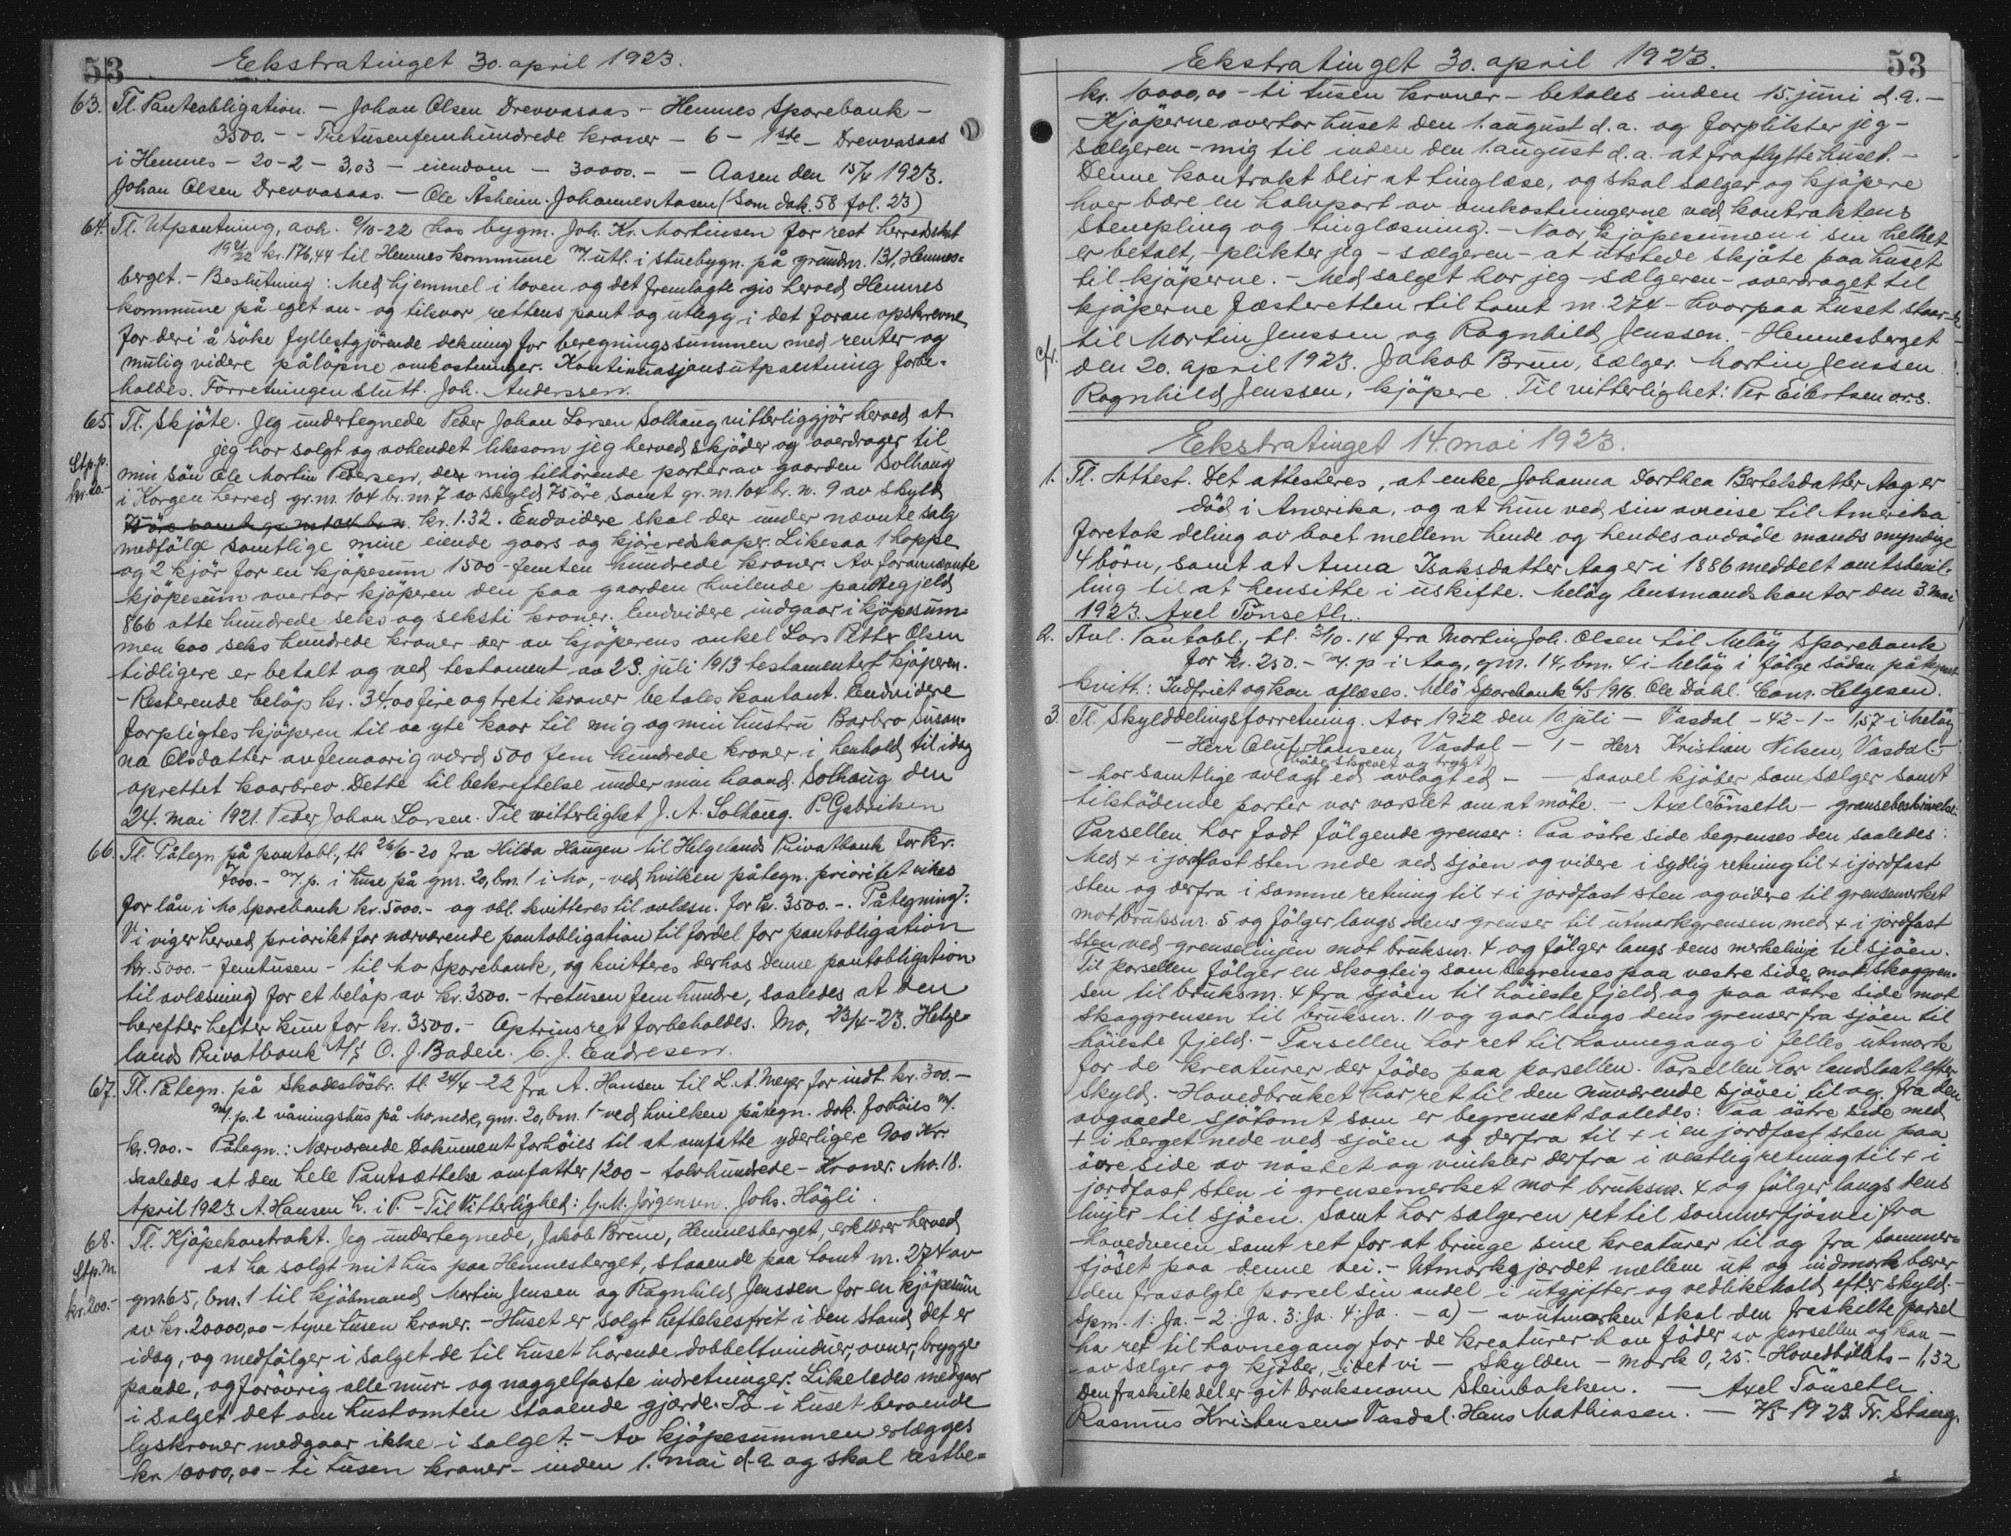 53
Ekstratinget 30. april 1923.
63. Tl. Panteobligation. — Johan Olsen Drevvasaas — Hemnes Sparebank —
3500. - - Tretusenfemhundrede kroner — 6 — 1ste — Drevvasaas
i Hemnes — 20 - 2 — 3,03 — eiendom — 30000. - — Aasen den 15/4 1923.
Johan Olsen Drevvasaas. — Ole Åsheim. Johannes Aasen (Som dok. 58 fol. 23)
64. Tl. Utpantning, avh. 9/10-22 hos bygm. Joh. Kr. Mortinsen for rest herredsskat
1921/22 kr. 176,44 til Hemnes kommune m/ utl. i stuebygn. på grundnr. 131, Hemnes-
berget. - Beslutning: Med hjemmel i loven og det fremlagte gis herved Hemnes
kommune på eget an- og tilsvar rettens pant og utlegg i det foran opskrevne
for deri å søke fyllestgjörende dekning for beregningssummen med renter og
mulig videre påløpne omkostninger. Kontinuasjonsutpantning forbe-
holdes. Forretningen slutt. Joh. Anderssen.
65. Tl. Skjöte. Jeg undertegnede Peder Johan Larsen Solhaug vitterliggjör herved at
Stp. p. kr. 20.-
jeg har solgt og avhendet likesom jeg herved skjöder og overdrager til
min sön Ole Martin Pedersen, den mig tilhörende parter av gaarden Solhaug
i Korgen herred gr. nr. 104 br. nr. 7 av skyld 75 öre samt gr. nr. 104 br. n. 9 av skyld
75 öre samt gr. nr. 104 br. n. kr. 1.32. Endvidere skal der under nævnte salg
medfölge samtlige mine eiende gaars og kjöreredskaper. Likesaa 1 hoppe
og 2 kjör for en kjöpesum 1500 - femten hundrede kroner. Av forannævnte
kjöpesum overtar kjöperen den paa gaarden hvilende pantegjeld
866 otte hundrede seks og seksti kroner. Endvidere indgaar i kjöpesum-
men 600 seks hundrede kroner der av kjöperens onkel Lars Petter Olsen
tidligere er betalt og ved testament av 23. juli 1913 testamentert kjöperen.
- Resterende belöp kr. 34,00 fire og treti kroner betales kontant. Endvidere
forpligtes kjöperen til aa yte kaar til mig og min hustru Barbro Susan-
na Olsdatter av femaarig værd 500 fem hundrede kroner i henhold til idag
oprettet kaarbrev. Dette til bekreftelse under min haand. Solhaug den
24. mai 1921. Peder Johan Larsen. Til vitterlighet J. A. Solhaug. P. Gabrilsen
66. Tl. Påtegn på pantobl., tl. 26/6-20 fra Hilda Haugen til Helgelands Privatbank for kr.
7000.- m/ p. i huse på gnr. 20, bnr. 1 i Mo, - ved hvilken påtegn. prioritet vikes
for lån i Mo Sparebank kr. 5000.- og obl. kvitteres til avlæsn. for kr. 3500.-. Påtegning:
Vi viger herved prioritet for nærværende pantobligation til fordel for pantobligation
kr. 5000.- femtusen - til Mo Sparebank, og kvitteres derhos denne pantobligation
til avlæsning for et belöp av kr. 3500.- tretusen fem hundre, saaledes at den
herefter hefter kun for kr. 3500.- Optrinsret forbeholdes. Mo, 23/4-23. Helge-
lands Privatbank A/S O. J. Baden. C. J. Endresen.
67. Tl. Påtegn. på Skadeslösbr. tl. 24/4-22 fra A. Hansen til L. A. Meyer for indt. kr. 300.-
m/ p. i våningshus på Mo nedre, gnr. 20, bnr. 1 - ved hvilken påtegn. dok. forhöies m/.
kr. 900.- Påtegn.: Nærværende Dokument forhöies til at omfatte yderligere 900 Kr.
saaledes at den hele Pantsættelse omfatter 1200 - tolvhundrede - Kroner. Mo. 18.
April 1923 A. Hansen L. i P. - Til Vitterlighed: G. M. Jörgensen. Johs. Högli.
68. Tl. Kjöpekontrakt. Jeg undertegnede, Jakob Brun, Hemnesberget, erklærer herved
Stp. M. kr. 200.-
at ha solgt mit hus paa Hemnesberget, staaende paa tomt nr. 274 av
gnr. 65, bnr. 1 til kjöbmand Martin Jensen og Ragnhild Jenssen for en kjöpesum
av kr. 20000,00 - tyve tusen kroner. - Huset er solgt heftelsesfrit i den stand det er
idag, og medfölger i salget de til huset hörende dobbeltvinduer, ovner, brygge-
pande, og forövrig alle mur- og naggelfaste indretninger. Likeledes medgaar
i salget det om hustomten staaende gjærde. To i huset beroende
lyskroner medgaar ikke i salget. - Av kjöpesummen erlægges
kr. 10000,00 - ti tusen kroner - inden 1. mai d.a. og skal restbe-
Ekstratinget 30. april 1923.
53
kr. 10000,00 - ti tusen kroner - betales inden 15. juni d.a. -
Kjöperne overtar huset den 1. august d.a. og forplikter jeg -
sælgeren - mig til inden den 1. august d.a. at fraflytte huset. -
Denne kontrakt blir at tinglæse, og skal sælger og kjöpere
hver bære en halvpart av omkostningerne ved kontraktens
stempling og tinglæsning. - Naar kjöpesummen i sin helhet
er betalt, - plikter jeg - sælgeren - at utstede skjöte paa huset
til kjöperne. - Med salget har jeg - sælgeren - overdraget til
kjöperne fæsteretten til tomt nr. 274 - hvorpaa huset staar -
til Martin Jenssen og Ragnhild Jenssen. - Hemnesberget
cfr.
den 20. april 1923. Jakob Brun, sælger. Martin Jenssen
Ragnhild Jenssen, kjöpere. Til vitterlighet: Per Eilertsen o.r.s.
Ekstratinget 14. mai 1923.
1. Tl. Attest. Det attesteres, at enke Johanna Dorthea Bertelsdatter Aag er
död i Amerika, og at hun ved sin avreise til Amerika
foretok deling av boet mellem hende og hendes avdöde mands myndige
4 börn, samt at Anna Isaksdatter Aag er i 1886 meddelt amtsbevil-
ling til at hensitte i uskifte. Melöy lensmandskontor den 3. mai
1923. Axel Tönseth.
2. Avl. Pantobl., tl. 3/10-14 fra Martin Joh. Olsen til Melöy Sparebank
for kr. 250.- m/. p. i Aag, gnr. 14, bnr. 4 i Melöy i fölge sådan påtegnet
kvitt.: Indfriet og kan aflæses. Melö Sparebank 6/5 1916. Ole Dahl. Conr. Helgesen.
3. Tl. Skylddelingsforretning. Aar 1922 den 10 juli — Vasdal - 42 - 1 - 1,57 i Melöy
- Herr Oluf Hansen, Vasdal - 1 - Herr Kristian Nilsen, Vasdal. -
(både skrevet og trykt)
- har samtlige avlagt ed avlagt ed - — Saavel kjöber som sælger samt
tilstödende parter var varslet om at möte. - Axel Tönseth - grænsebeskrivelse:
Parsellen har fådt fölgende grenser: Paa östre side begrenses den saaledes:
Med + i jordfast sten nede ved sjöen og videre i sydlig retning til + i jordfast
sten og derfra i samme retning til + i jordfast sten og videre til grensemerket
mot bruksnr. 5 og fölger langs dens grenser til utmarkgrensen med + i jordfast
sten ved grenselinjen mot bruksnr. 4 og fölger langs dens merkelinje til sjöen.
Til parsellen fölger en skogteig som begrenses paa vestre side mot skoggren-
sen til bruksnr. 4 fra sjöen til höieste fjeld og paa östre side mot
skoggrensen til bruksnr. 11 og gaar langs dens grenser fra sjöen til
höieste fjeld. - Parsellen har ret til havnegang i felles utmark
for de kreaturer der födes paa parsellen. Parsellen har landslaat efter
skyld. - Hovedbruket har ret til den nuværende sjövei til og fra den
avgaaede sjötomt som er begrenset saaledes: Paa östre side med
+ i berget nede ved sjöen og derfra til + i en jordfast sten paa
övre side av nöstet og vinkler derfra i vestlig retning til + i
jordfast sten i grensemerket mot bruksnr. 4 og fölger langs dens
linjer til sjöen. Samt har sælgeren ret til sommerfjösvei fra
hovedveien samt ret for at bringe sine kreaturer til og fra sommer-
fjöset paa denne vei. - Utmarkgjærdet mellem ut og indmark bærer
den frasolgte parsel sin andel i utgifter og vedlikehold efter skyld. -
Spm. 1: Ja. - 2: Ja. 3: Ja. 4: Ja. - a) - av utmarken skal den fraskilte parsel
ha ret til havnegang for de kreaturer han föder av parsellen og kan -
- av sælger og kjöber, idet vi - Skylden - mark 0,25. - Hovedbölets - 1,32
Den fraskilte del er git bruksnavn Steinbakken. — Axel Tönseth.
Rasmus Kristensen Vasdal. Hans Mathiasen. — 7/5-1923. Fr. Stang.